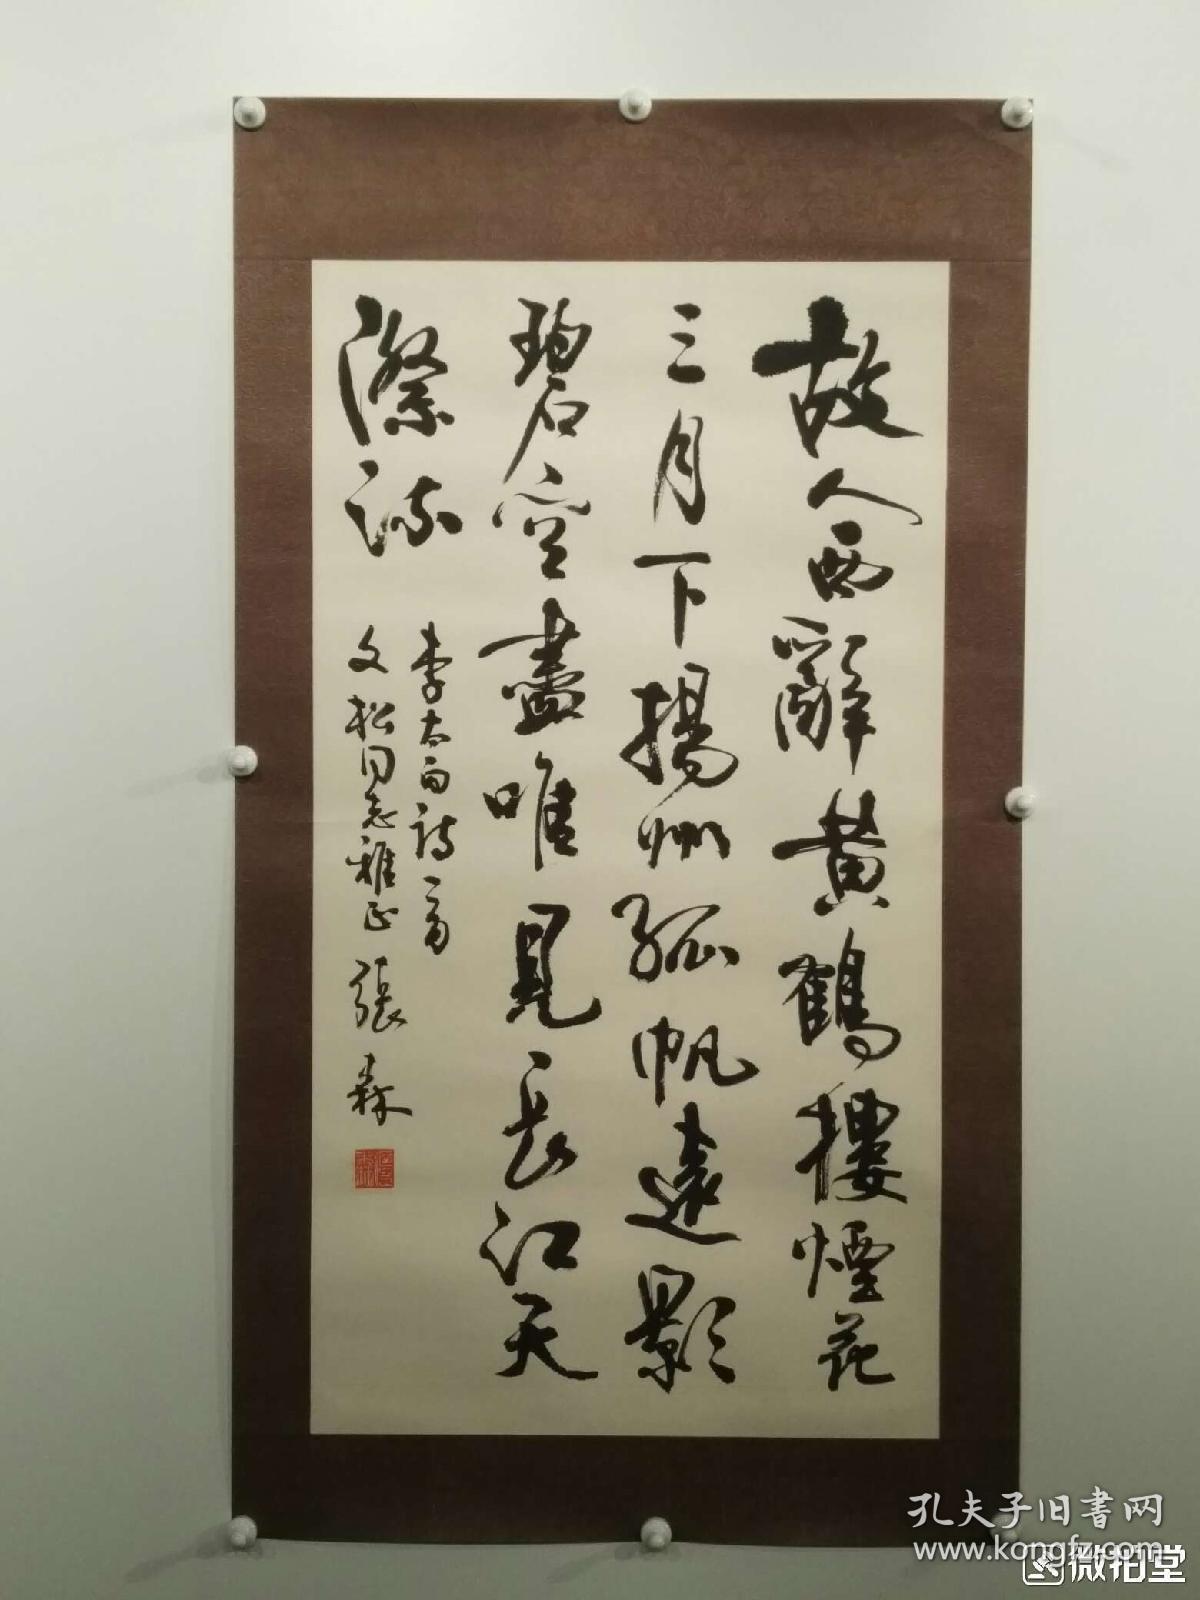 故人西辭黄鶴樓煙花
三月下揚州孤帆遠影
碧空盡唯見長江天
際流
李太白詩一首
文松同志雅正 張森
孔夫子旧書网
www.kongfz.com
微拍堂